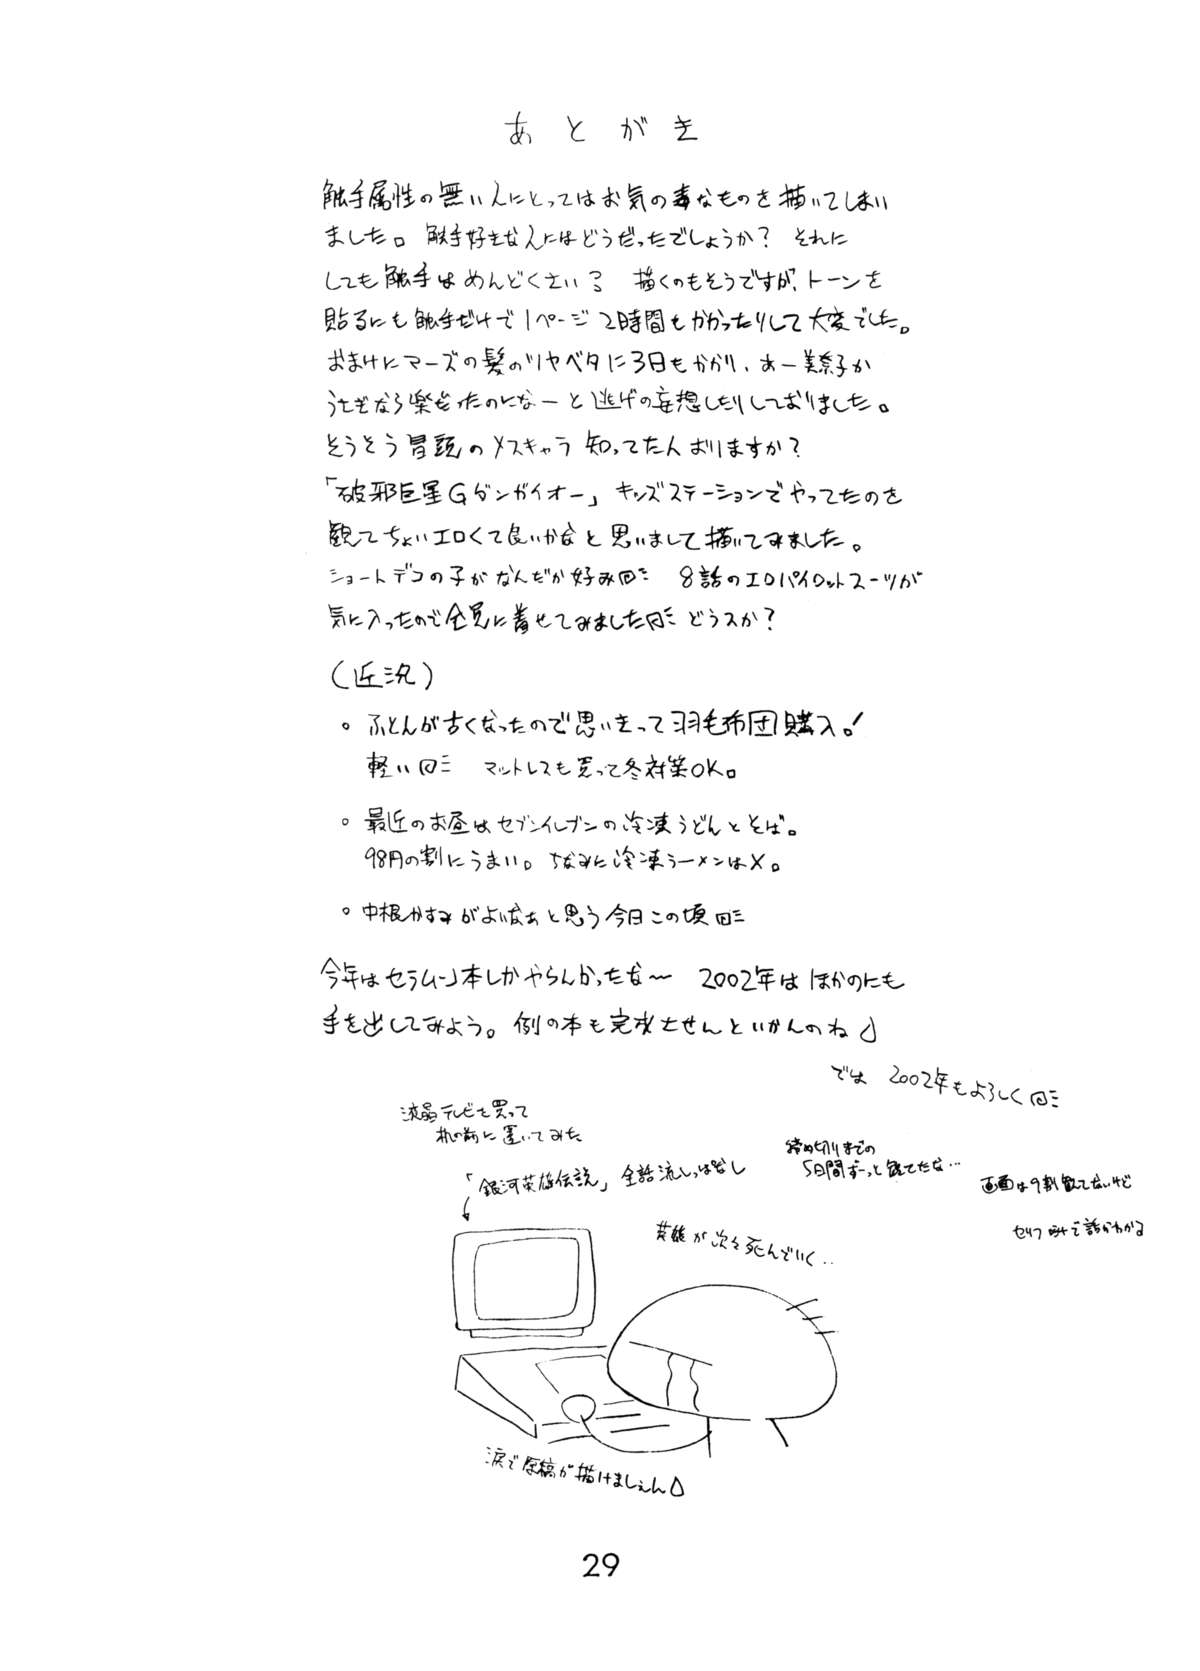 あとがき
触手属性の無い人にとってはお気の毒なものを描いてしまい
ました。触手好きな人にはどうだったでしょうか？ それに
しても触手はめんどくさい 描くのもそうですが、トーンを
貼るにも触手だけで1ページ2時間もかかったりして大変でした。
おまけにマーズの髪のツヤベタに3日もかかり、あー美奈子か
うさぎなら楽だったのになーと逃げの妄想したりしておりました。
そうそう冒頭のメスキャラ知ってた人おりますか？
「破邪巨星Gダンガイオー」キッズステーションでやってたのを
観てちょいエロくて良いかなと思いまして描いてみました。
ショートデコの子がなんだか好み 8話のエロパイロットスーツが
気に入ったので全員に着せてみました どうスか？
（近況）
○ ふとんが古くなったので思いきって羽毛布団購入！
軽い マットレスも買って冬対策OK。
○ 最近のお昼はセブンイレブンの冷凍うどんとそば。
98円の割にうまい。ちなみに冷凍ラーメンは×。
○ 中根かすみがよいなぁと思う今日この頃
今年はセラムン本しかやらんかったな〜 2002年はほかのにも
手を出してみよう。例の本も完成させんといかんのね
では 2002年もよろしく
液晶テレビを買って
机の前に置いてみた
「銀河英雄伝説」全話流しっぱなし
締め切りまでの
5日間ずーっと観てたな…
画面は9割観てないけど
セリフだけで話がわかる
英雄が次々死んでいく‥
涙で原稿が描けましぇん
29